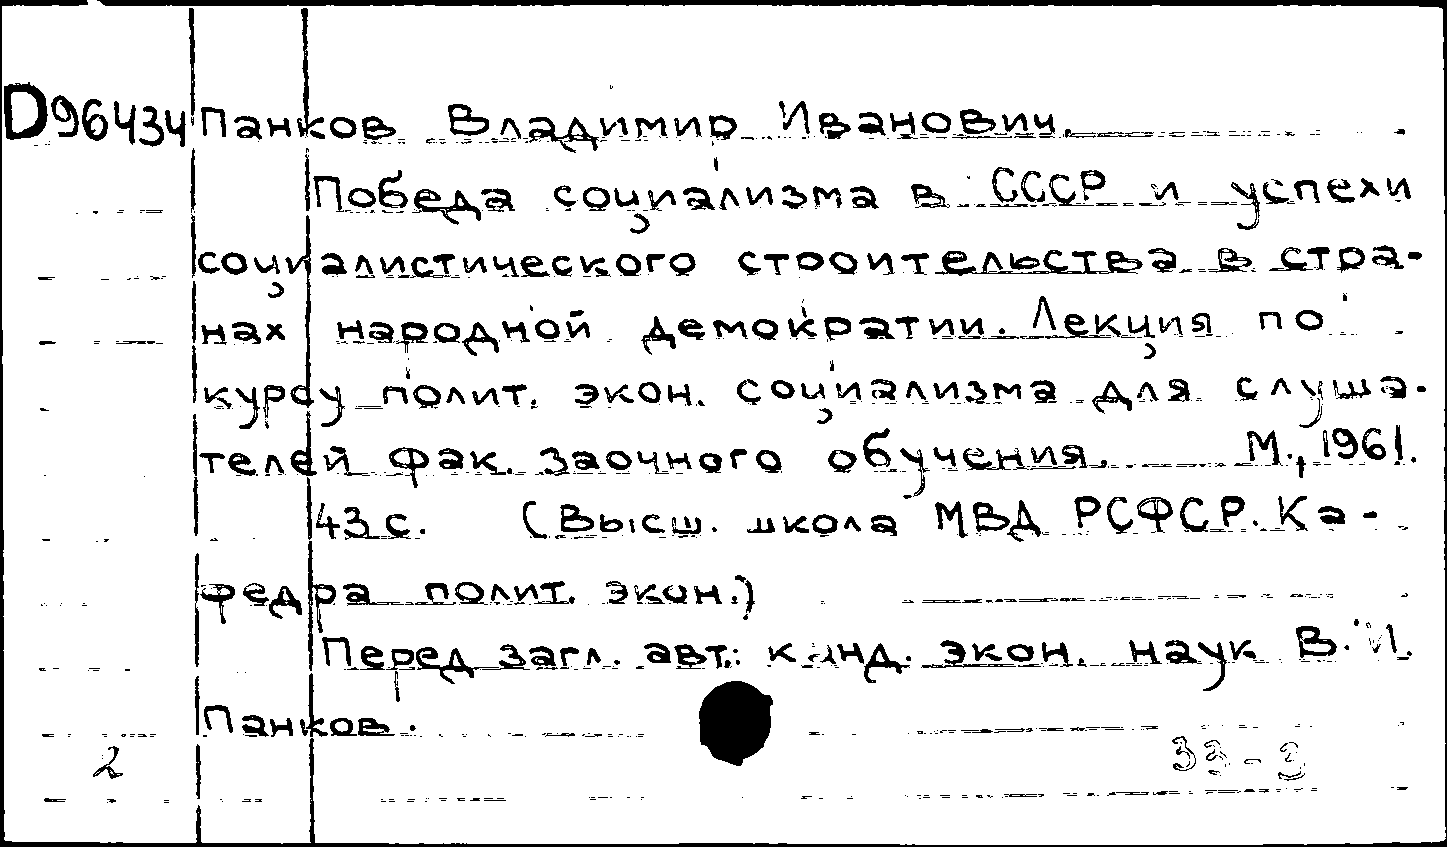 D96434 Панков Владимир Иванович.
Победа социализма в СССР и успехи
социалистического строительства в стра-
нах народной демократии. Лекция по
курсу полит. экон. социализма для слуша-
телей фак. заочного обучения. М., 1961.
43 с. (Высш. школа МВД РСФСР. Ка-
федра полит. экон.)
Перед загл. авт.: канд. экон. наук В. И.
Панков.
2 33-3